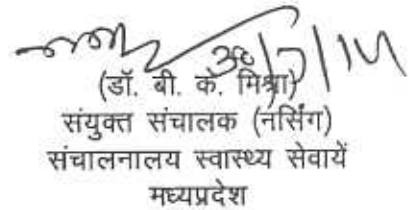 30/7/14
(डॉ. बी. के. मिश्रा)
संयुक्त संचालक (नर्सिंग)
संचालनालय स्वास्थ्य सेवायें
मध्यप्रदेश